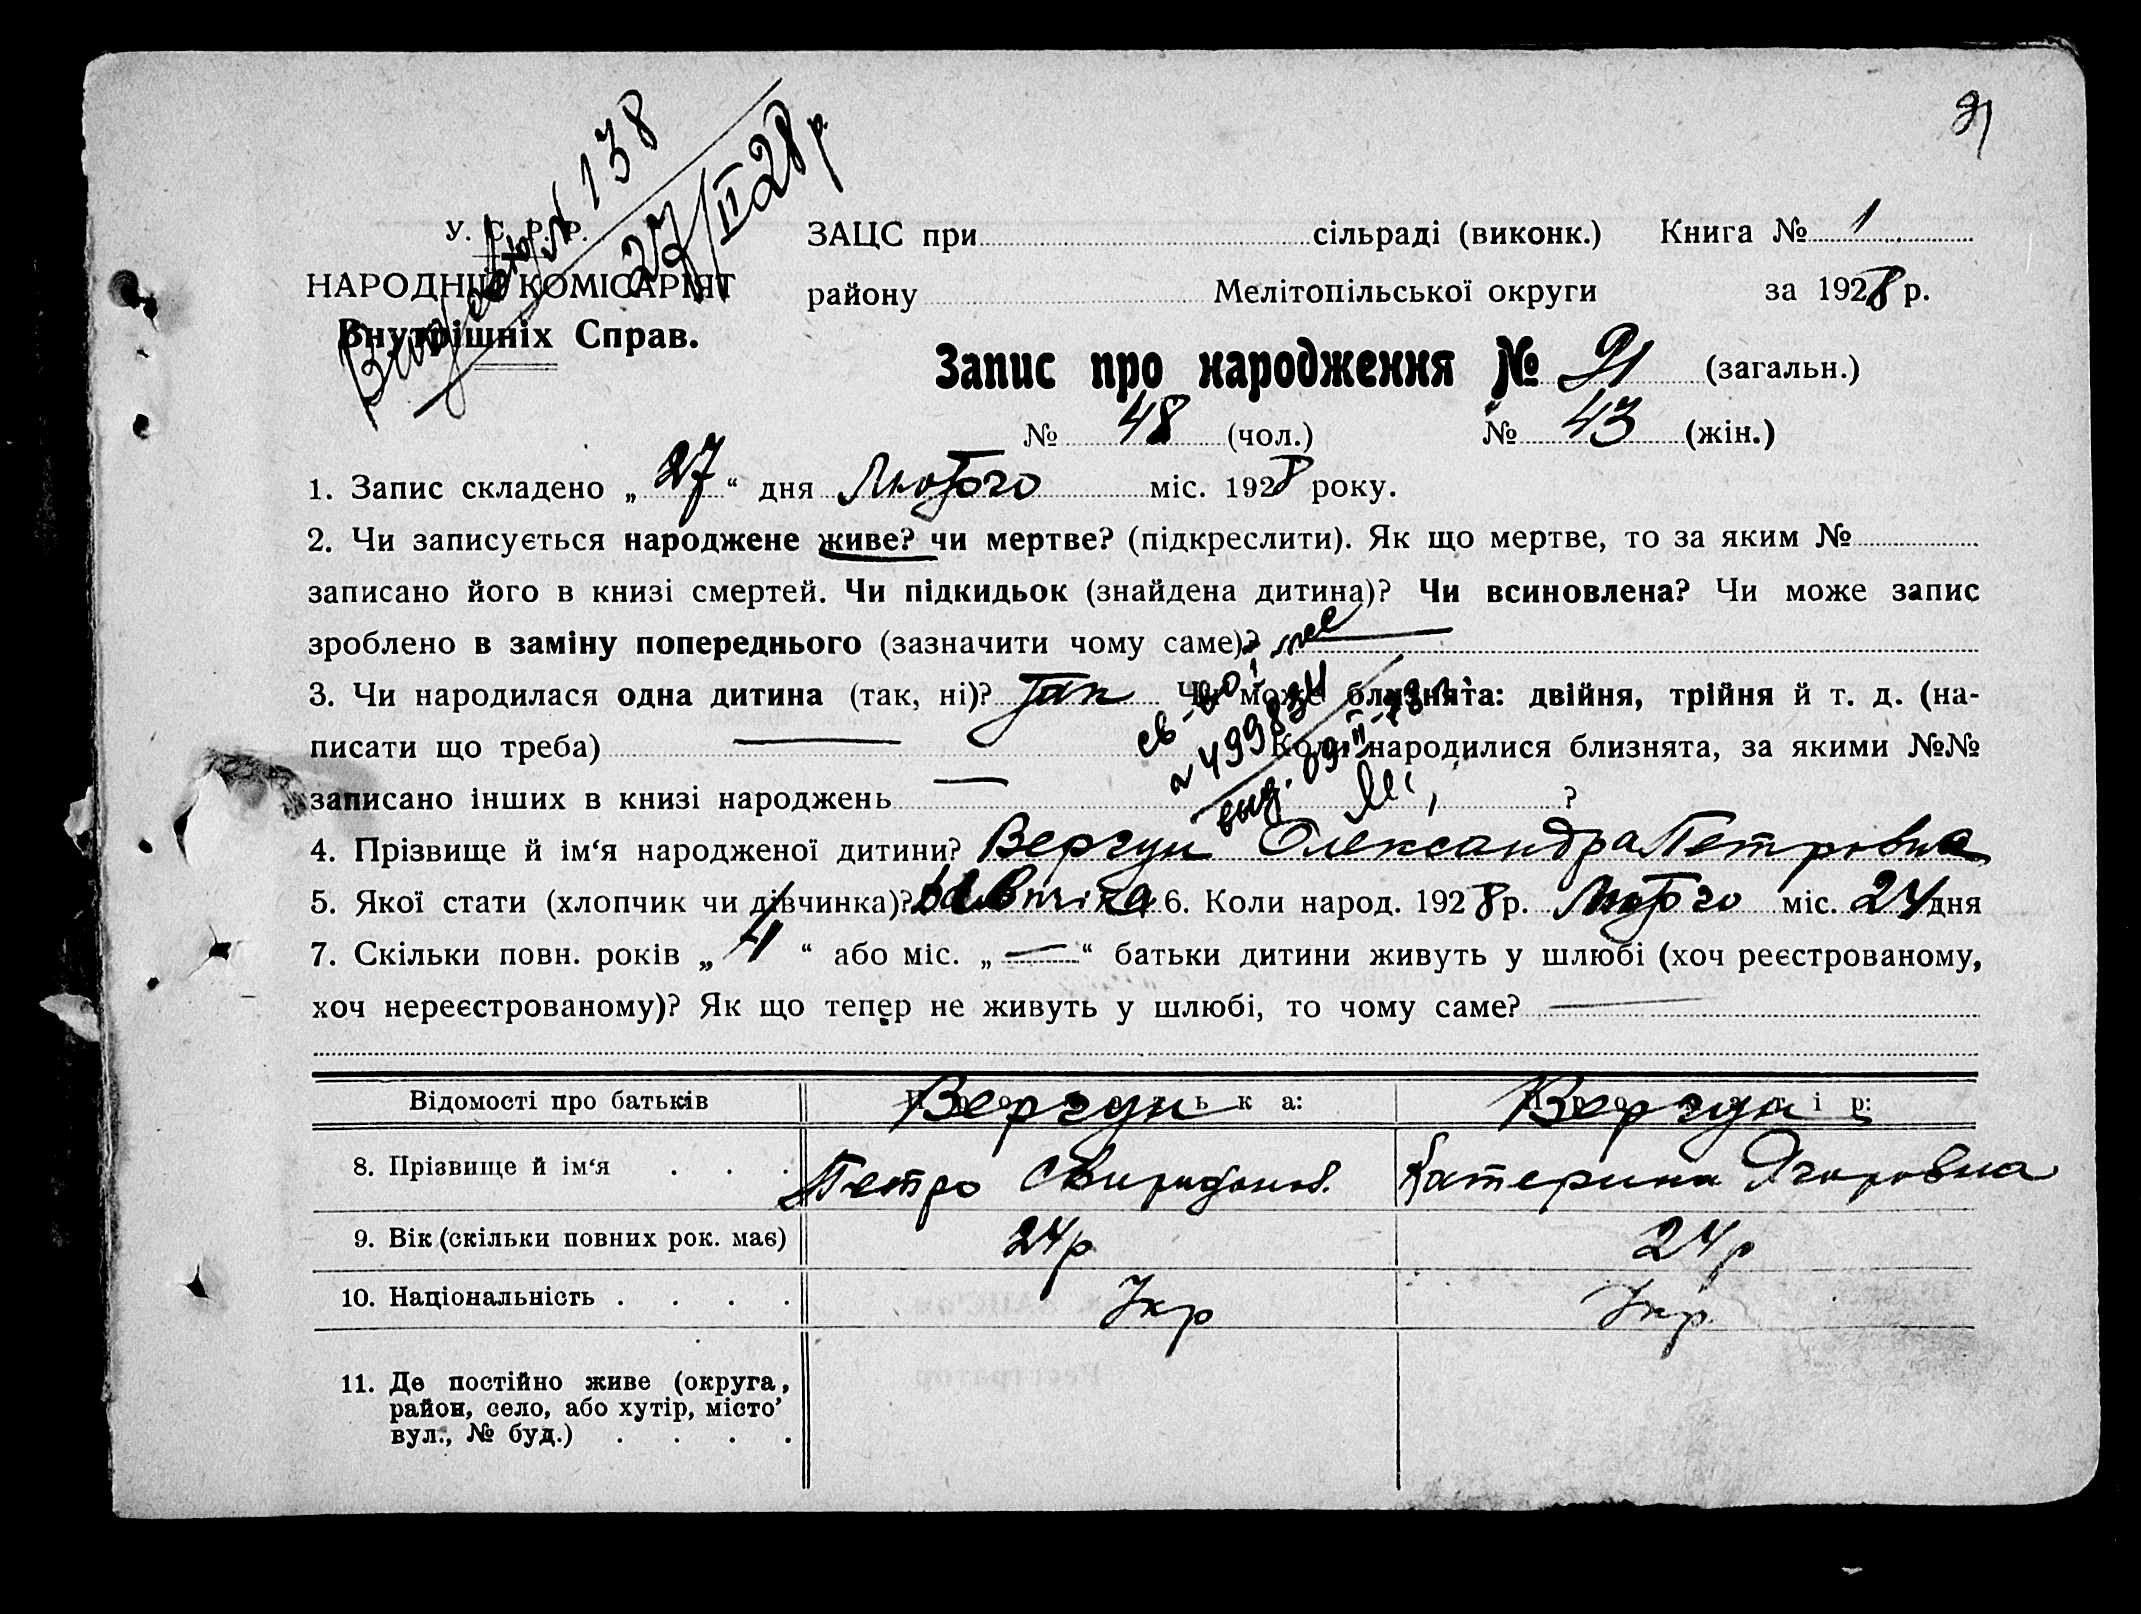 91
№ 138
27/II 28 р.
У. С. Р. Р.
НАРОДНІЙ КОМІСАРІЯТ
Внутрішніх Справ.
ЗАЦС при сільраді (виконк.) Книга № 1
району Мелітопільської округи за 1928 р.
Запис про народження № 91 (загальн.)
№ 48 (чол.) № 43 (жін.)
1. Запис складено „ 27 “ дня Лютого міс. 1928 року.
2. Чи записується народжене живе? чи мертве? (підкреслити). Як що мертве, то за яким №
записано його в книзі смертей. Чи підкидьок (знайдена дитина)? Чи всиновлена? Чи може запис
зроблено в заміну попереднього (зазначити чому саме)?
3. Чи народилася одна дитина (так, ні)? так Чи може близнята: двійня, трійня й т. д. (на-
писати що треба) — Коли народилися близнята, за якими №№
записано інших в книзі народжень — ?
4. Прізвище й ім‘я народженої дитини? Вергун Олександра Петровна
5. Якої стати (хлопчик чи дівчинка)? 6. Коли народ. 1928 р. Лютого міс. 24 дня
7. Скільки повн. років „ 4 “ або міс. „ — “ батьки дитини живуть у шлюбі (хоч реєстрованому,
хоч нереєстрованому)? Як що тепер не живуть у шлюбі, то чому саме? —
Відомості про батьків Про батька: Про матір:
Вергун Вергун
8. Прізвище й ім‘я . . . Петро Свиридонов. Катерина Ягоровна
9. Вік (скільки повних рок. має) 24 р 24 р
10. Національність . . . . Укр Укр.
11. Де постійно живе (округа,
район, село, або хутір, місто’
вул., № буд.) . . . .